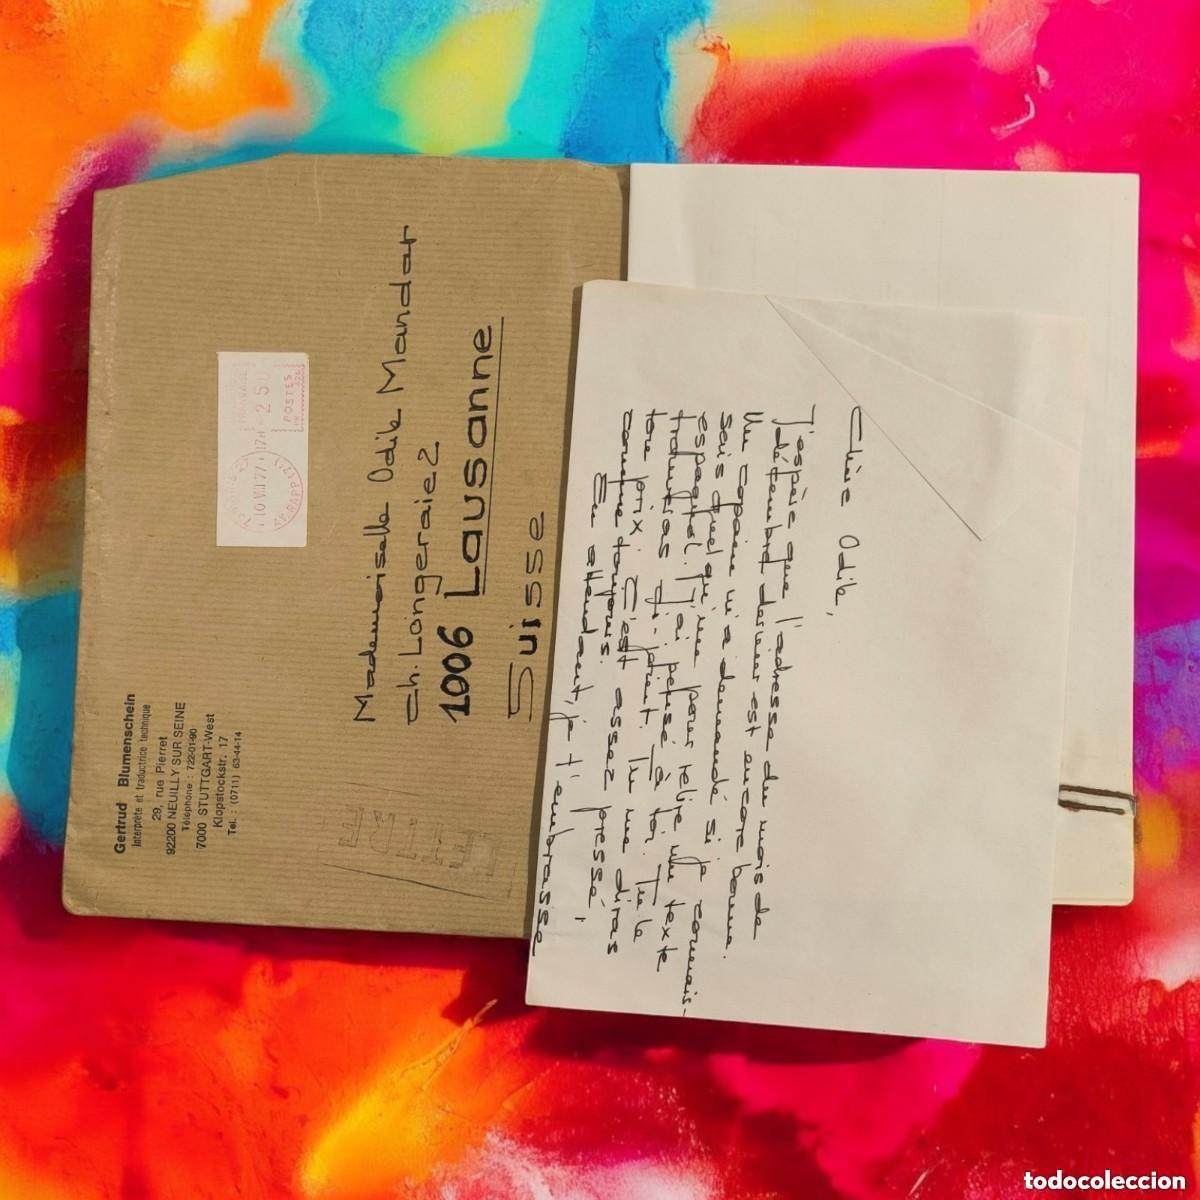 Gertrud Blumenschein
Interprète et traductrice technique
29, rue Pierret
92200 NEUILLY SUR SEINE
Téléphone : 722-01-90
7000 STUTTGART-West
Klopstockstr. 17
Tel. : (0711) 63-44-14
POSTES
Mademoiselle Odile Mandar
Ch. Longeraie 2
1006 Lausanne
Suisse
LETTRE
Chère Odile,
J'espère que l'adresse du mois de
décembre dernier est encore bonne.
Un copain m'a demandé si je connais-
sais quelqu'un pour relire un texte
espagnol. J'ai pensé à toi. Tu le
traduiras ci-joint. Tu me diras
ton prix. C'est assez pressé,
comme toujours.
En attendant, je t'embrasse
todocoleccion